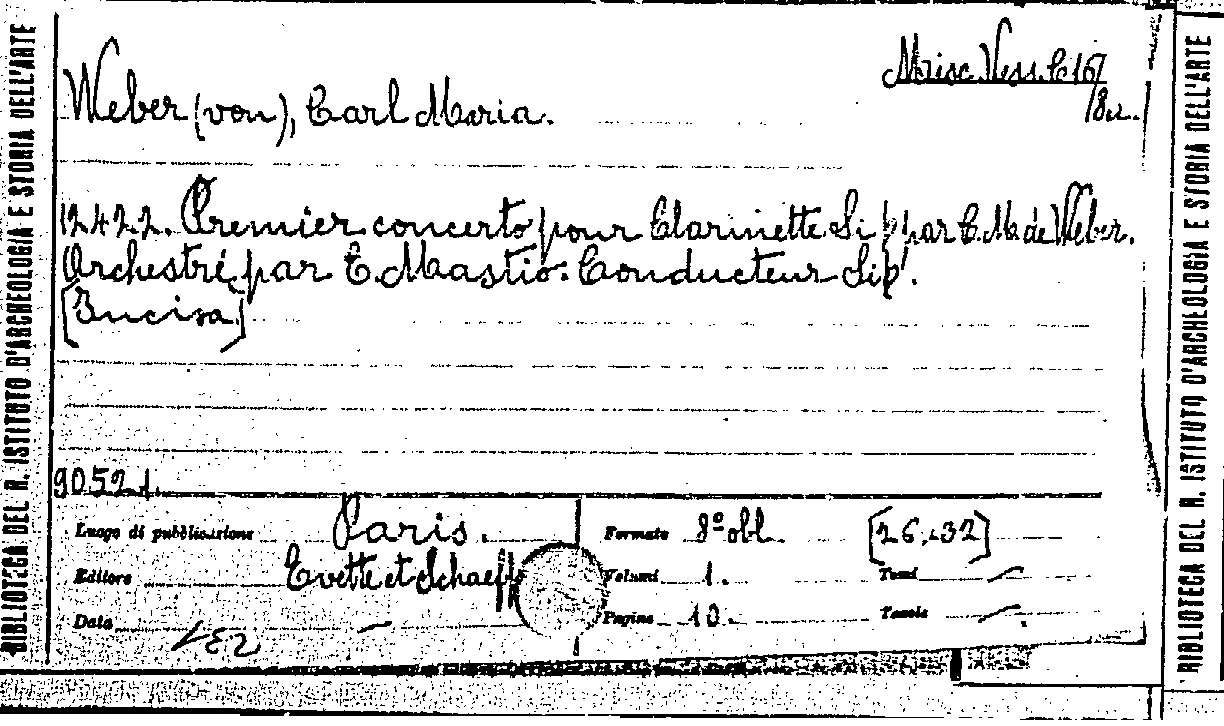 BIBLIOTECA DEL R. ISTITUTO D'ARCHEOLOGIA E STORIA DELL'ARTE
Misc. Vess. C 16/
18u.
Weber (von), Carl Maria.
12422. Premier concerto pour Clarinette Si♭ par C. M. de Weber.
Orchestré par E. Mastio. Conducteur Si♭.
[Incisa]
90521.
Luogo di pubblicazione Paris.
Formato 8º obl. [26,×32]
Editore Evette et Schaeff
Volumi 1. Tomi —
Data —
Pagine 10. Tavole —
BIBLIOTECA DEL R. ISTITUTO D'ARCHEOLOGIA E STORIA DELL'ARTE